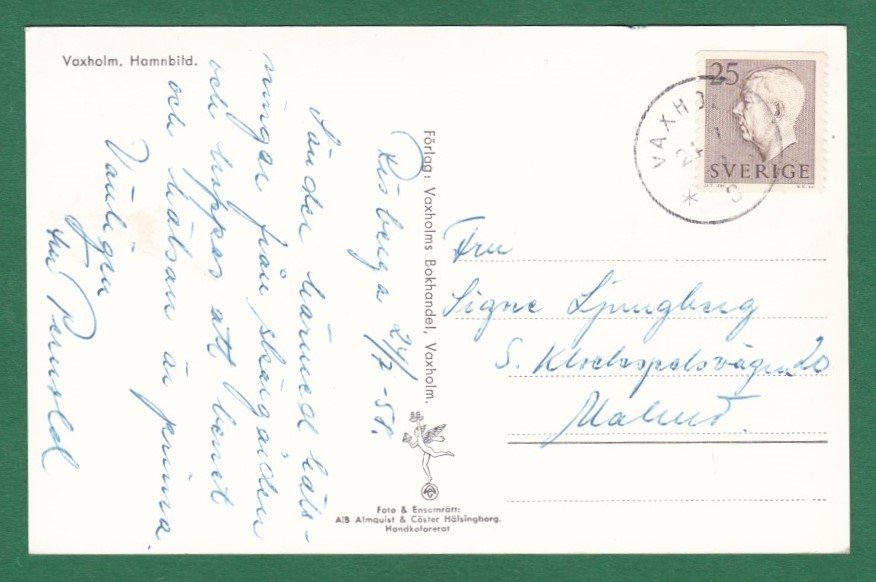 Vaxholm. Hamnbild.
Risberga 24/7 -58.
Sänder härmed häls-
ningar från skärgården
och hoppas att benet
och hälsan är prima.
Vänligen
Förlag: Vaxholms Bokhandel, Vaxholm.
Foto & Ensamrätt:
A/B Almquist & Cöster Hälsingborg.
Handkolorerat
25
SVERIGE
VAXHO
24
Fru
Signe Ljungberg
S. Klockspelsvägen 20
Malmö.